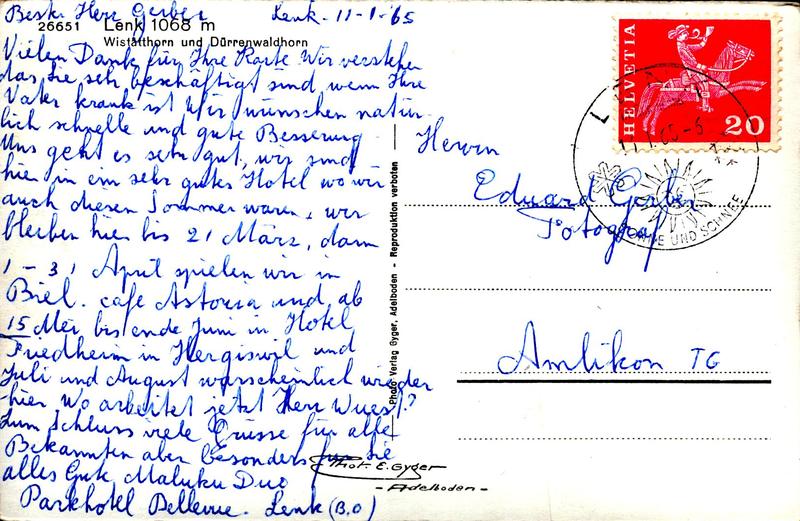 Best. Herr Gerber Lenk - 11-1-'65
26651 Lenk 1068 m
Wistätthorn und Dürrenwaldhorn
Vielen Dank für Ihre Karte Wir verstehen
das Sie sehr beschäftigt sind, wenn Ihre
Vater krank ist Wir wünschen natür-
lich schnelle und gute Besserung
Uns geht es sehr gut, wir sind
hier in ein sehr gutes Hotel wo wir
auch diesen Sommer waren, wir
bleiben hier bis 21 März, dann
1 - 31 April spielen wir in
Biel. cafe Astoria und ab
15 Mei bis ende Juni in Hotel
Friedheim in Hergiswil und
Juli und August warscheinlich wieder
hier Wo arbeitet jetzt Herr Wuest?
Zum Schluss viele Grüsse für alle
Bekannten aber besonders für Sie
alles Gute Maluku Duo
Parkhotel Bellevue. Lenk (B.O)
Photo Verlag Gyger, Adelboden - Reproduktion verboten
Phot. E. Gyger
- Adelboden -
HELVETIA
20
UND SCHNEE
Herrn
Eduard Gerber
Fotograf
Amlikon TG